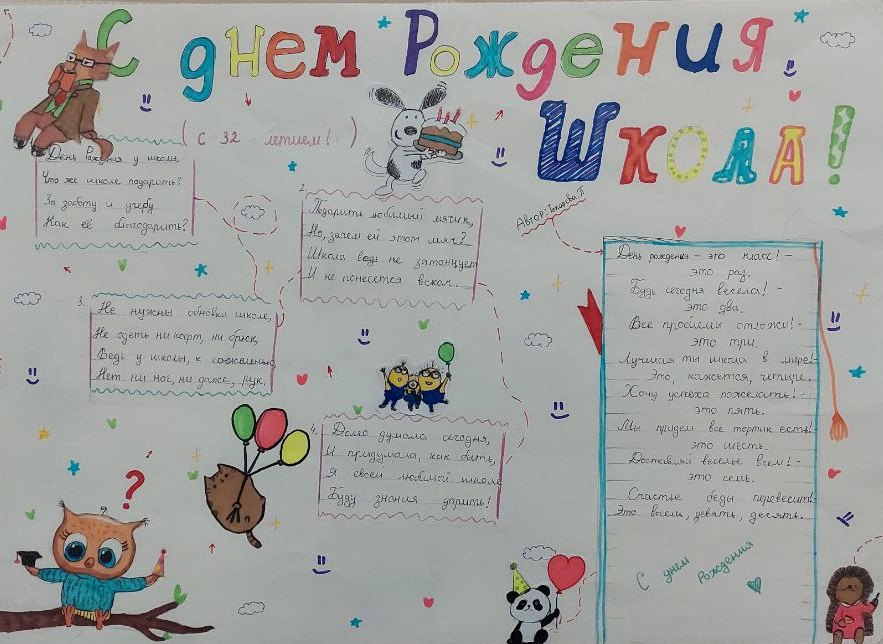 С днем Рождения
Школа!
(с 32 летием!)
День Рождения у школы,
Что же школе подарить?
За заботу и учебу
Как её благодарить?
2.
Подарить любимый мячик,
Но, зачем ей этот мяч?
Школа ведь не затанцует
И не понесется вскач.
3.
Не нужны обновки школе,
Не одеть ни кофт, ни брюк,
Ведь у школы, к сожаленью,
Нет ни ног, ни даже, рук.
4.
Долго думала сегодня,
И придумала, как быть,
Я своей любимой школе
Буду знания дарить!
Автор:
День рождения - это класс! -
это раз.
Будь сегодня весела! -
это два.
Все проблемы отложи! -
это три.
Лучшая ты школа в мире! -
Это, кажется, четыре.
Хочу успеха пожелать! -
это пять.
Мы придем все тортик есть! -
это шесть.
Доставляй веселье всем! -
это семь.
Счастье беды перевесит! -
Это восемь, девять, десять.
С днем Рождения
?
?